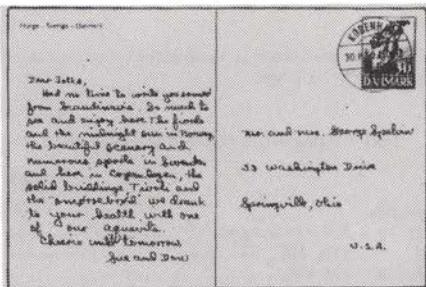 Norge - Sverige - Danmark
Dear Folks,
Had no time to write you sooner
from Scandinavia. So much to
see and enjoy here. The fiords
and the midnight sun in Norway,
the beautiful scenery and
numerous sports in Sweden
and here in Copenhagen, the
solid buildings, Tivoli and
the "smörrebröd" we drank
to your health with one
of our aquavits.
Cheerio until tomorrow
Sue and Dan
KØBENHAVN
30
DANMARK
Mr. and Mrs. George
53 Washington Drive
Springville, Ohio
U.S.A.